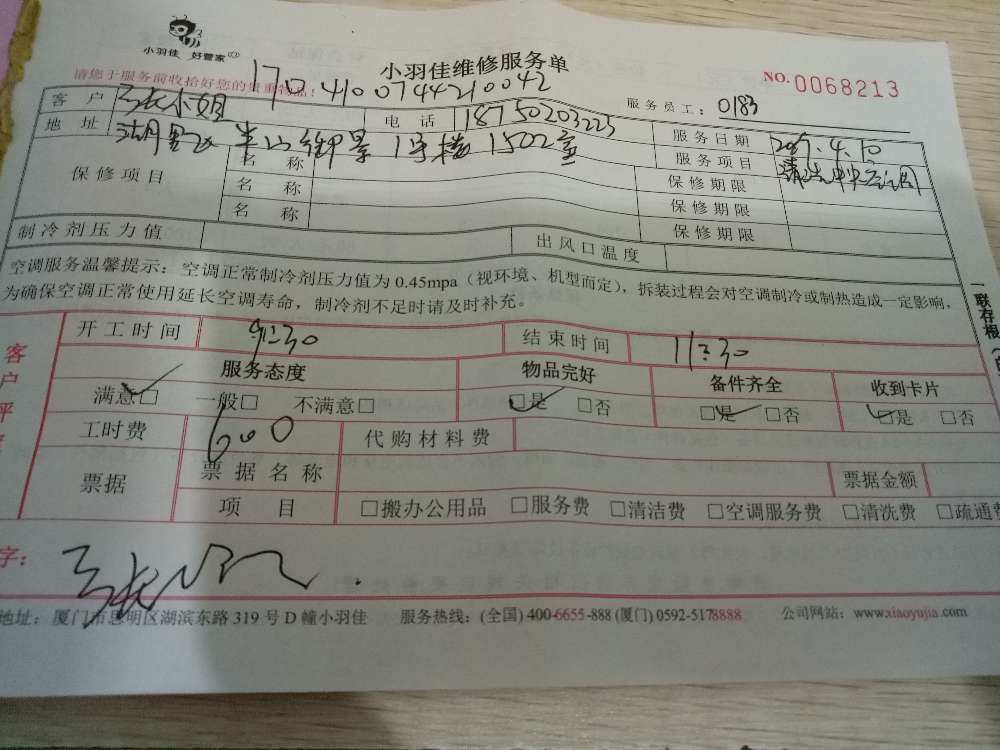 小羽佳 好管家
小羽佳维修服务单
NO.0068213
请您于服务前收拾好您的贵重物品!
170410074421 0042
服务员工: 0183
客户 张小姐 电话 18750203225 服务日期 2017.4.10
地址 湖里区 半山御景 1号楼 1502室 服务项目 清洗中央空调
保修项目 名称 保修期限
名称 保修期限
名称 保修期限
制冷剂压力值 出风口温度
空调服务温馨提示:空调正常制冷剂压力值为0.45mpa(视环境、机型而定),拆装过程会对空调制冷或制热造成一定影响,
为确保空调正常使用延长空调寿命,制冷剂不足时请及时补充。
一联存根
开工时间 9:30 结束时间 11:30
客户评
服务态度 物品完好 备件齐全 收到卡片
满意□ 一般□ 不满意□ □是 □否 □是 □否 □是 □否
工时费 600 代购材料费
票据 票据名称 票据金额
项目 □搬办公用品 □服务费 □清洁费 □空调服务费 □清洗费 □疏通费
字:
地址:厦门市思明区湖滨东路319号D幢小羽佳 服务热线:(全国)400-6655-888(厦门)0592-5178888 公司网站:www.xiaoyujia.com